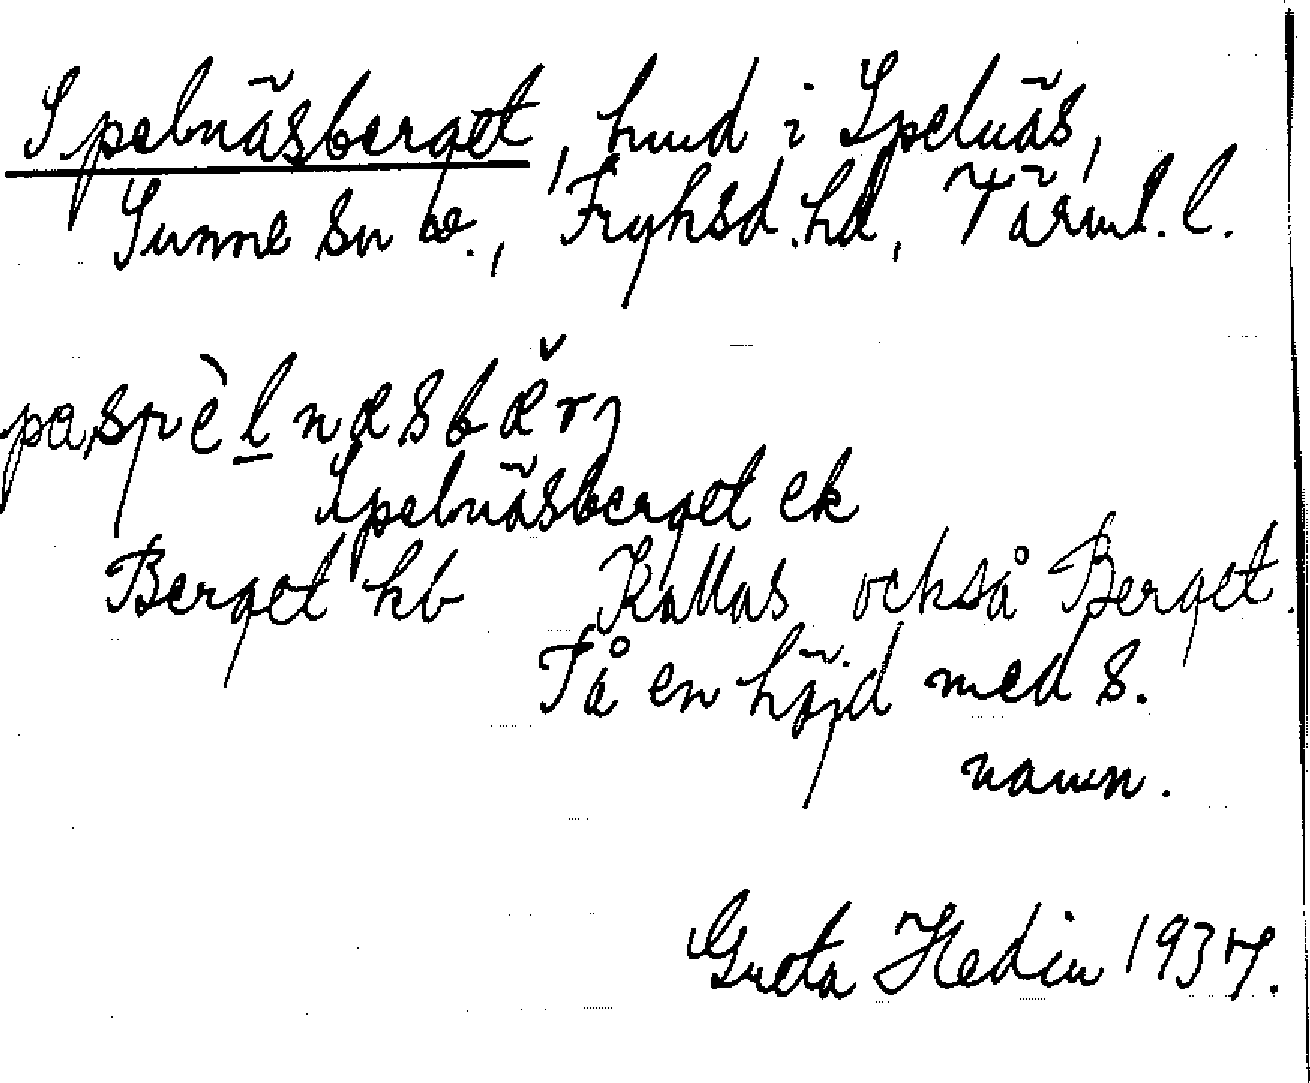 Spelnäsberget, hmd i Spelnäs,
Sunne sn o., Fryksd. hd, Värml. l.
pa spèlnæsbæ̌rj
Spelnäsberget ek
Berget kb Kallas också Berget.
På en höjd med s.
namn.
Greta Hedin 1937.